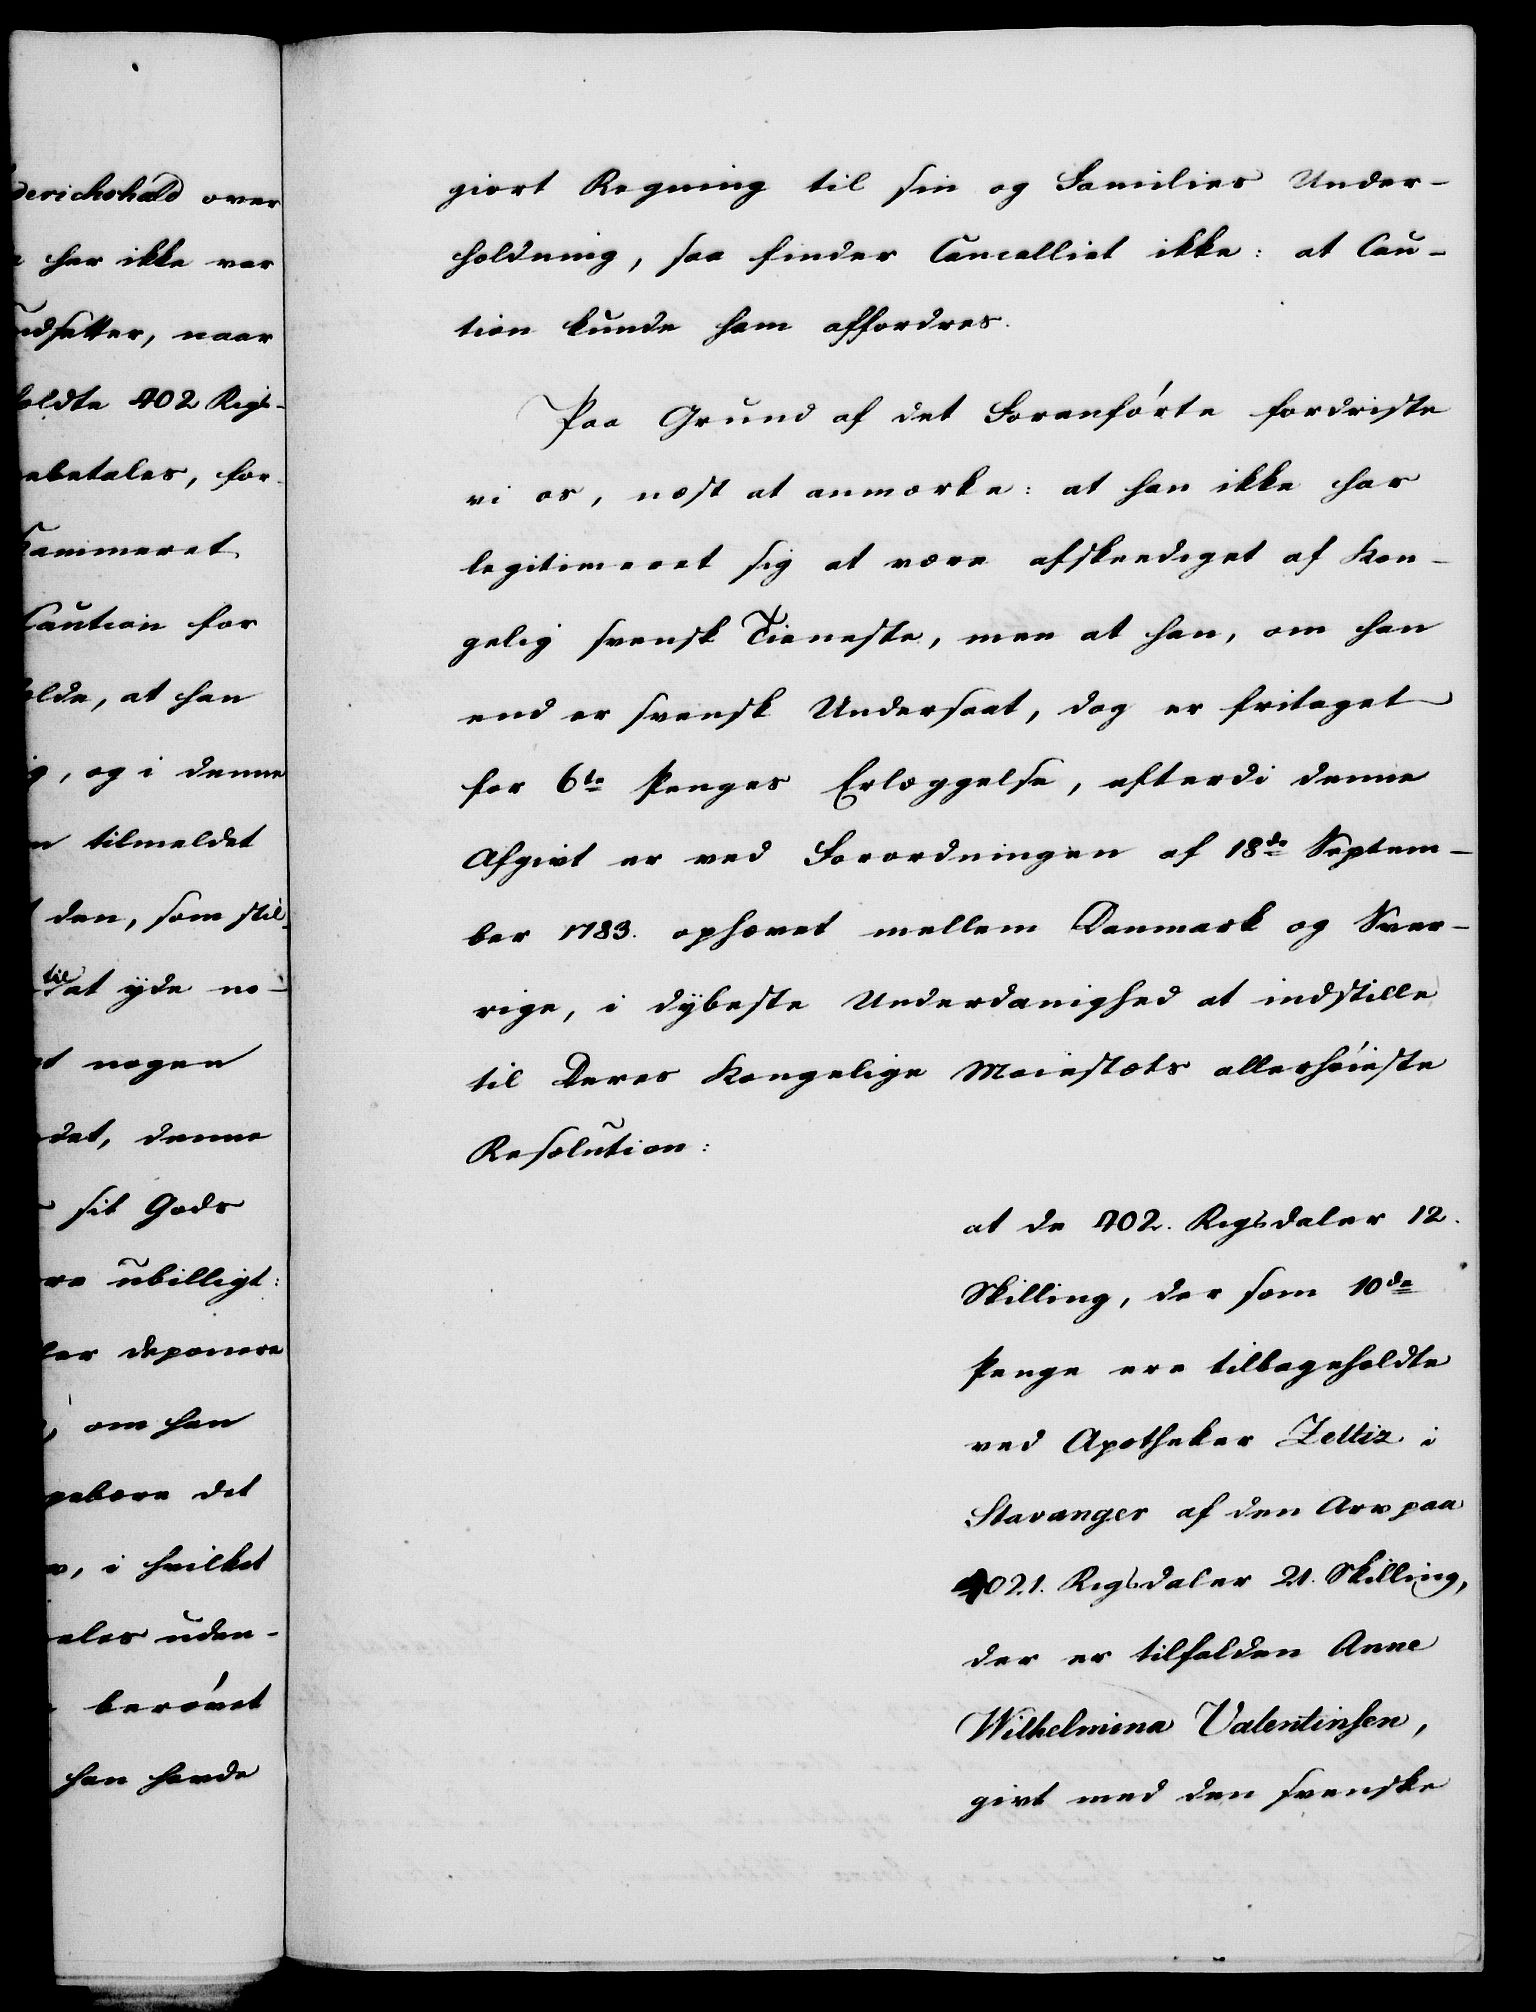 derichshald over
har ikke var
udsætter, naar
holdte 402 Rigs-
ebetales, for-
Kammeret
Caution for
olde, at han
ig, og i denne
n tilmeldet
den, som stil-
til at ÿde no-
t nogen
det, denne
sit Gods
re ubilligt:
ler deponere
, om han
gebære det
v, i hvilket
eles uden-
berövet
han havde
giort Regning til sin og Families Under-
holdning, saa finder Cancelliet ikke: at Cau-
tion kunde ham affordres.
Paa Grund af det Foranförte fordriste
vi os, næst at anmærke: at han ikke har
legitimeret sig at være afskeediget af Kon-
gelig svensk Tieneste, men at han, om han
end er svensk Undersaat, dog er fritaget
for 6te Penges Erlæggelse, efterdi denne
Afgivt er ved Forordningen af 18de Septem-
ber 1783. ophævet mellem Danmark og Sver-
rige, i dÿbeste Underdanighed at indstille
til Deres Kongelige Maiestæts allerhöieste
Resolution:
at de 402. Rigsdaler 12.
Skilling, der som 10de
Penge ere tilbageholdte
ved Apotheker Zeltiz i
Stavanger af den Arv paa
4021. Rigsdaler 21. Skilling,
der er tilfalden Anne
Wilhelmina Valentinsen,
givt med den svenske